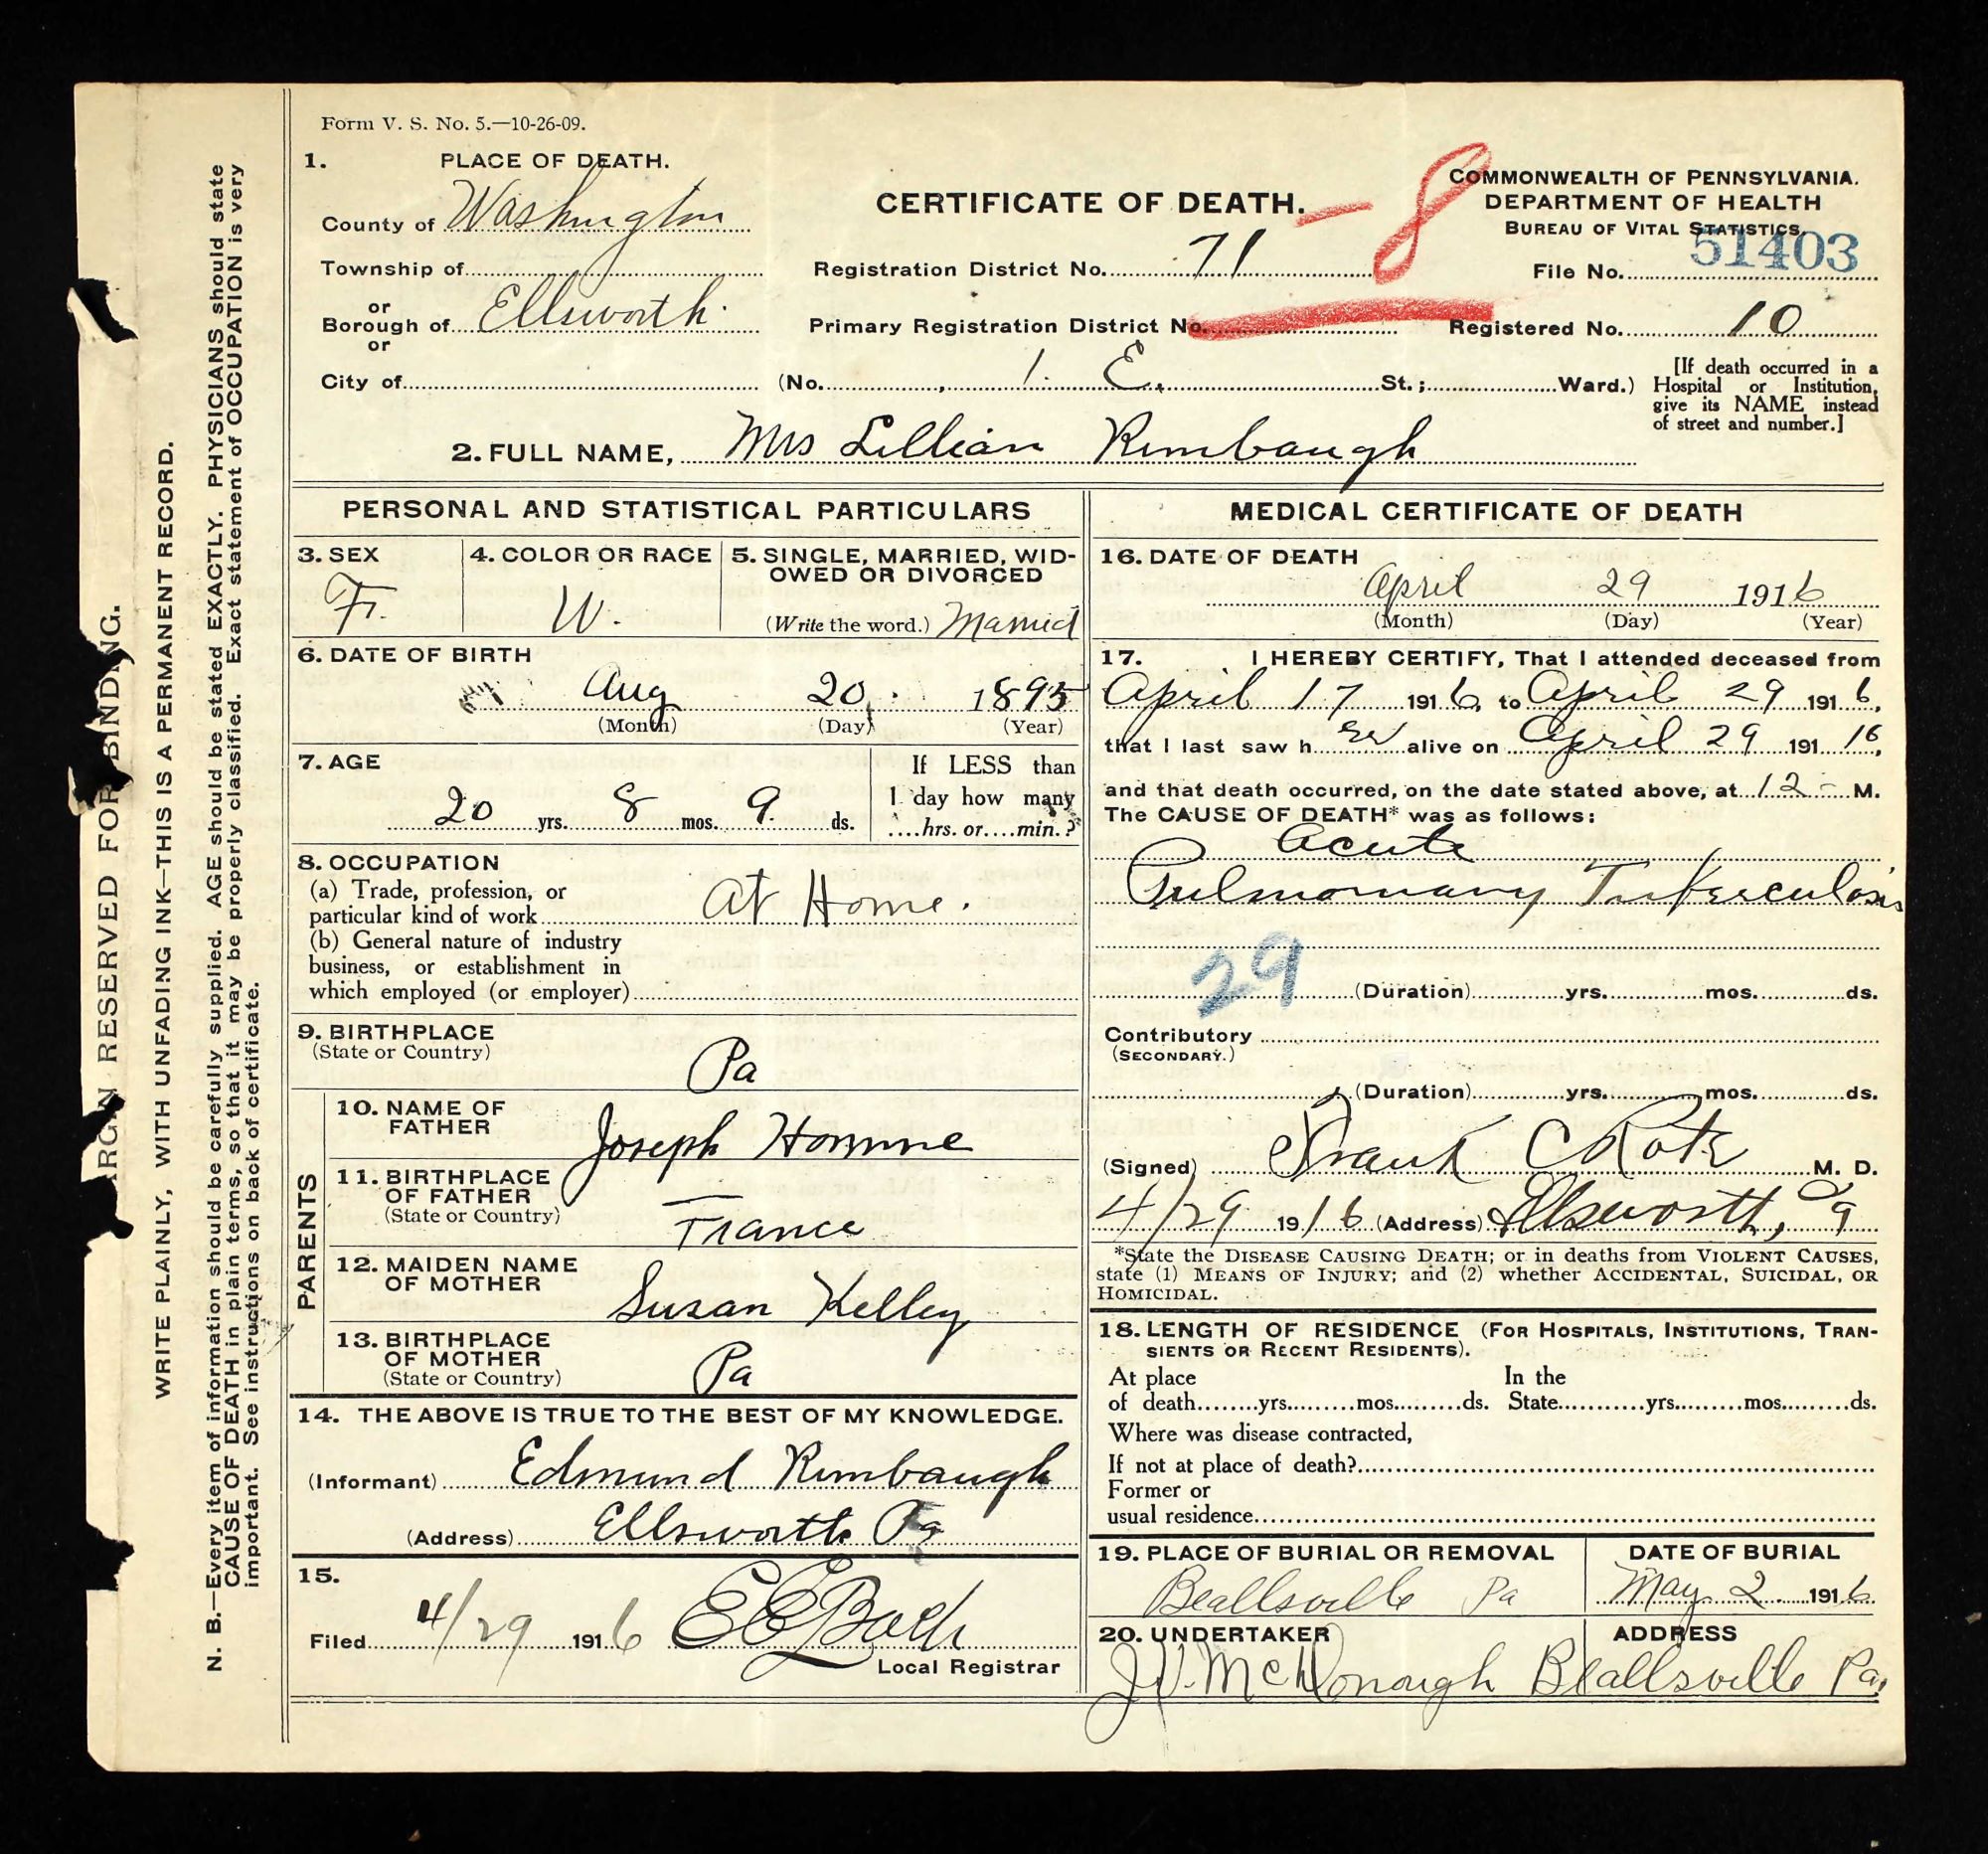 Form V. S. No. 5.—10-26-09.
1. PLACE OF DEATH.
County of Washington
Township of
or
Borough of Ellsworth
or
City of
CERTIFICATE OF DEATH. – 8
COMMONWEALTH OF PENNSYLVANIA.
DEPARTMENT OF HEALTH
BUREAU OF VITAL STATISTICS.
Registration District No. 71
File No. 51403
Primary Registration District No.
Registered No. 10
(No. , 1. E. St.; Ward.)
[If death occurred in a
Hospital or Institution,
give its NAME instead
of street and number.]
2. FULL NAME, Mrs Lillian Rimbaugh
PERSONAL AND STATISTICAL PARTICULARS
3. SEX
F.
4. COLOR OR RACE
W.
5. SINGLE, MARRIED, WID-
OWED OR DIVORCED
(Write the word.) Married
6. DATE OF BIRTH
Aug 20 1895
(Month) (Day) (Year)
7. AGE
20 yrs. 8 mos. 9 ds.
If LESS than
1 day how many
....hrs. or....min.?
8. OCCUPATION
(a) Trade, profession, or
particular kind of work At Home.
(b) General nature of industry
business, or establishment in
which employed (or employer)
9. BIRTHPLACE
(State or Country)
Pa
PARENTS
10. NAME OF
FATHER
Joseph Homme
11. BIRTHPLACE
OF FATHER
(State or Country)
France
12. MAIDEN NAME
OF MOTHER
Susan Kelley
13. BIRTHPLACE
OF MOTHER
(State or Country)
Pa
14. THE ABOVE IS TRUE TO THE BEST OF MY KNOWLEDGE.
(Informant) Edmund Rimbaugh
(Address) Ellsworth Pa
15.
Filed 4/29 1916
Local Registrar
MEDICAL CERTIFICATE OF DEATH
16. DATE OF DEATH
April 29 1916
(Month) (Day) (Year)
17. I HEREBY CERTIFY, That I attended deceased from
April 17 1916, to April 29 1916,
that I last saw her alive on April 29 191 16,
and that death occurred, on the date stated above, at 12 - M.
The CAUSE OF DEATH* was as follows:
Acute
Pulmonary Tuberculosis
29
(Duration) yrs. mos. ds.
Contributory
(SECONDARY.)
(Duration) yrs. mos. ds.
(Signed) Frank C M. D.
4/29 1916 (Address) Ellsworth, Pa
*State the DISEASE CAUSING DEATH; or in deaths from VIOLENT CAUSES,
state (1) MEANS OF INJURY; and (2) whether ACCIDENTAL, SUICIDAL, OR
HOMICIDAL.
18. LENGTH OF RESIDENCE (FOR HOSPITALS, INSTITUTIONS, TRAN-
SIENTS OR RECENT RESIDENTS).
At place In the
of death........yrs.........mos.........ds. State...........yrs.........mos.........ds.
Where was disease contracted,
If not at place of death?
Former or
usual residence
19. PLACE OF BURIAL OR REMOVAL
Beallsville Pa
DATE OF BURIAL
May 2 1916
20. UNDERTAKER ADDRESS
J. V. McDonough Beallsville Pa.
MARGIN RESERVED FOR BINDING.
WRITE PLAINLY, WITH UNFADING INK—THIS IS A PERMANENT RECORD.
N. B.—Every item of information should be carefully supplied. AGE should be stated EXACTLY. PHYSICIANS should state
CAUSE OF DEATH in plain terms, so that it may be properly classified. Exact statement of OCCUPATION is very
important. See instructions on back of certificate.